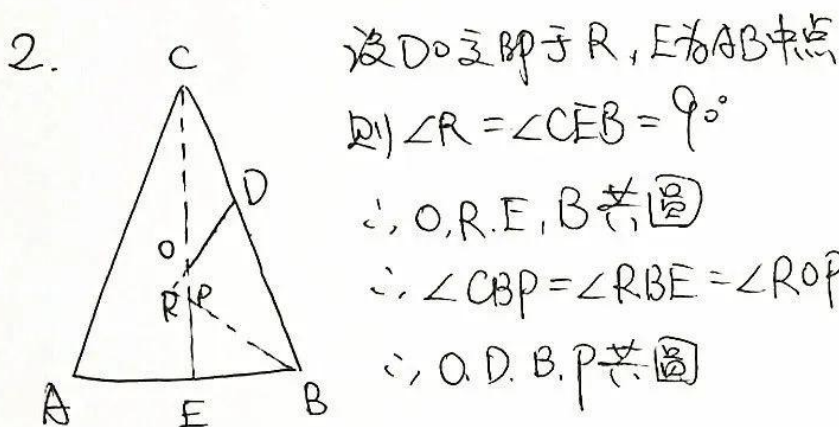 2.
C
D
O
R
P
A
E
B
设DO交BP于R,E为AB中点
则∠R=∠CEB=90°
∴O,R.E,B共圆
∴∠CBP=∠RBE=∠ROP
∴O.D.B.P共圆